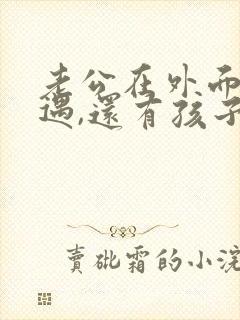 老公在外面
遇,還有孩子
賣砒霜的小浣